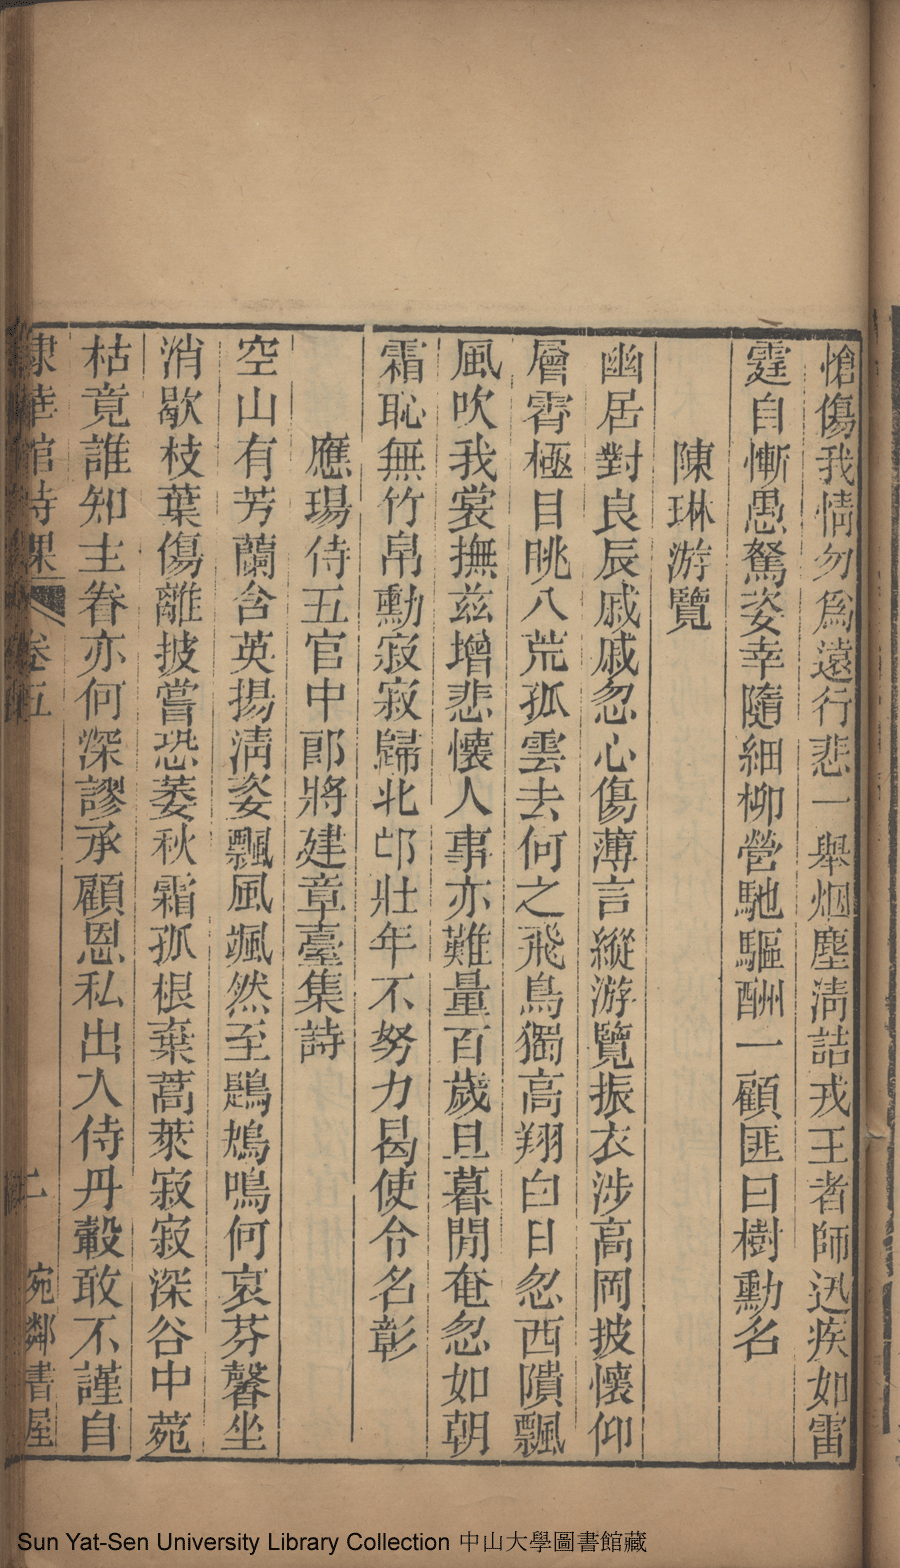 愴傷我情勿爲遠行悲一舉烟塵淸詰戎王者師迅疾如雷
霆自慚愚駑姿幸隨細柳營馳驅酬一顧匪曰樹勳名
陳琳游覽
幽居對良辰戚戚忽心傷薄言縱游覽振衣涉高岡披懷仰
層霄極目眺八荒孤雲去何之飛鳥獨高翔白日忽西隤飄
風吹我裳撫茲增悲懷人事亦難量百歲旦暮閒奄忽如朝
霜恥無竹帛勳寂寂歸北邙壯年不努力曷使令名彰
應瑒侍五官中郞將建章臺集詩
空山有芳蘭含英揚淸姿飄風颯然至鶗鴂鳴何哀芬馨坐
消歇枝葉傷離披嘗恐萎秋霜孤根棄蒿萊寂寂深谷中菀
枯竟誰知主眷亦何深謬承顧恩私出入侍丹轂敢不謹自
館詩課 卷五 二 宛鄰書屋
Sun Yat-Sen University Library Collection 中山大學圖書館藏